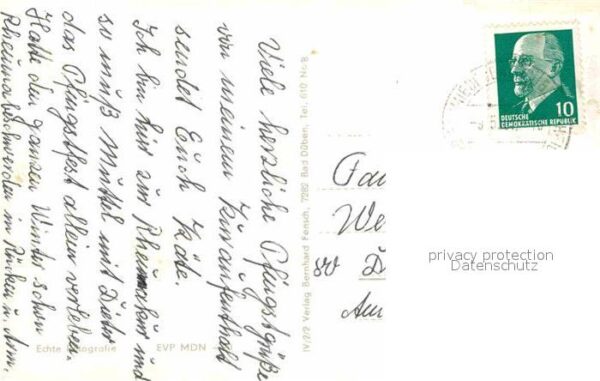 Viele herzliche Pfingstgrüße
von meinem Kuraufenthalt
sendet Euch Käte.
Ich bin hier zur Rheumakur und
so muß Muttel mit Dieter
das Pfingstfest allein verleben.
Hatte den ganzen Winter schon
Rheumabeschwerden im Rücken u. Arm.
Echte Fotografie EVP MDN
IV/2/2 Verlag Bernhard Fensch, 7282 Bad Düben, Tel. 610 No B
10
DEUTSCHE
DEMOKRATISCHE REPUBLIK
Fa
We
D
Au
privacy protection
Datenschutz